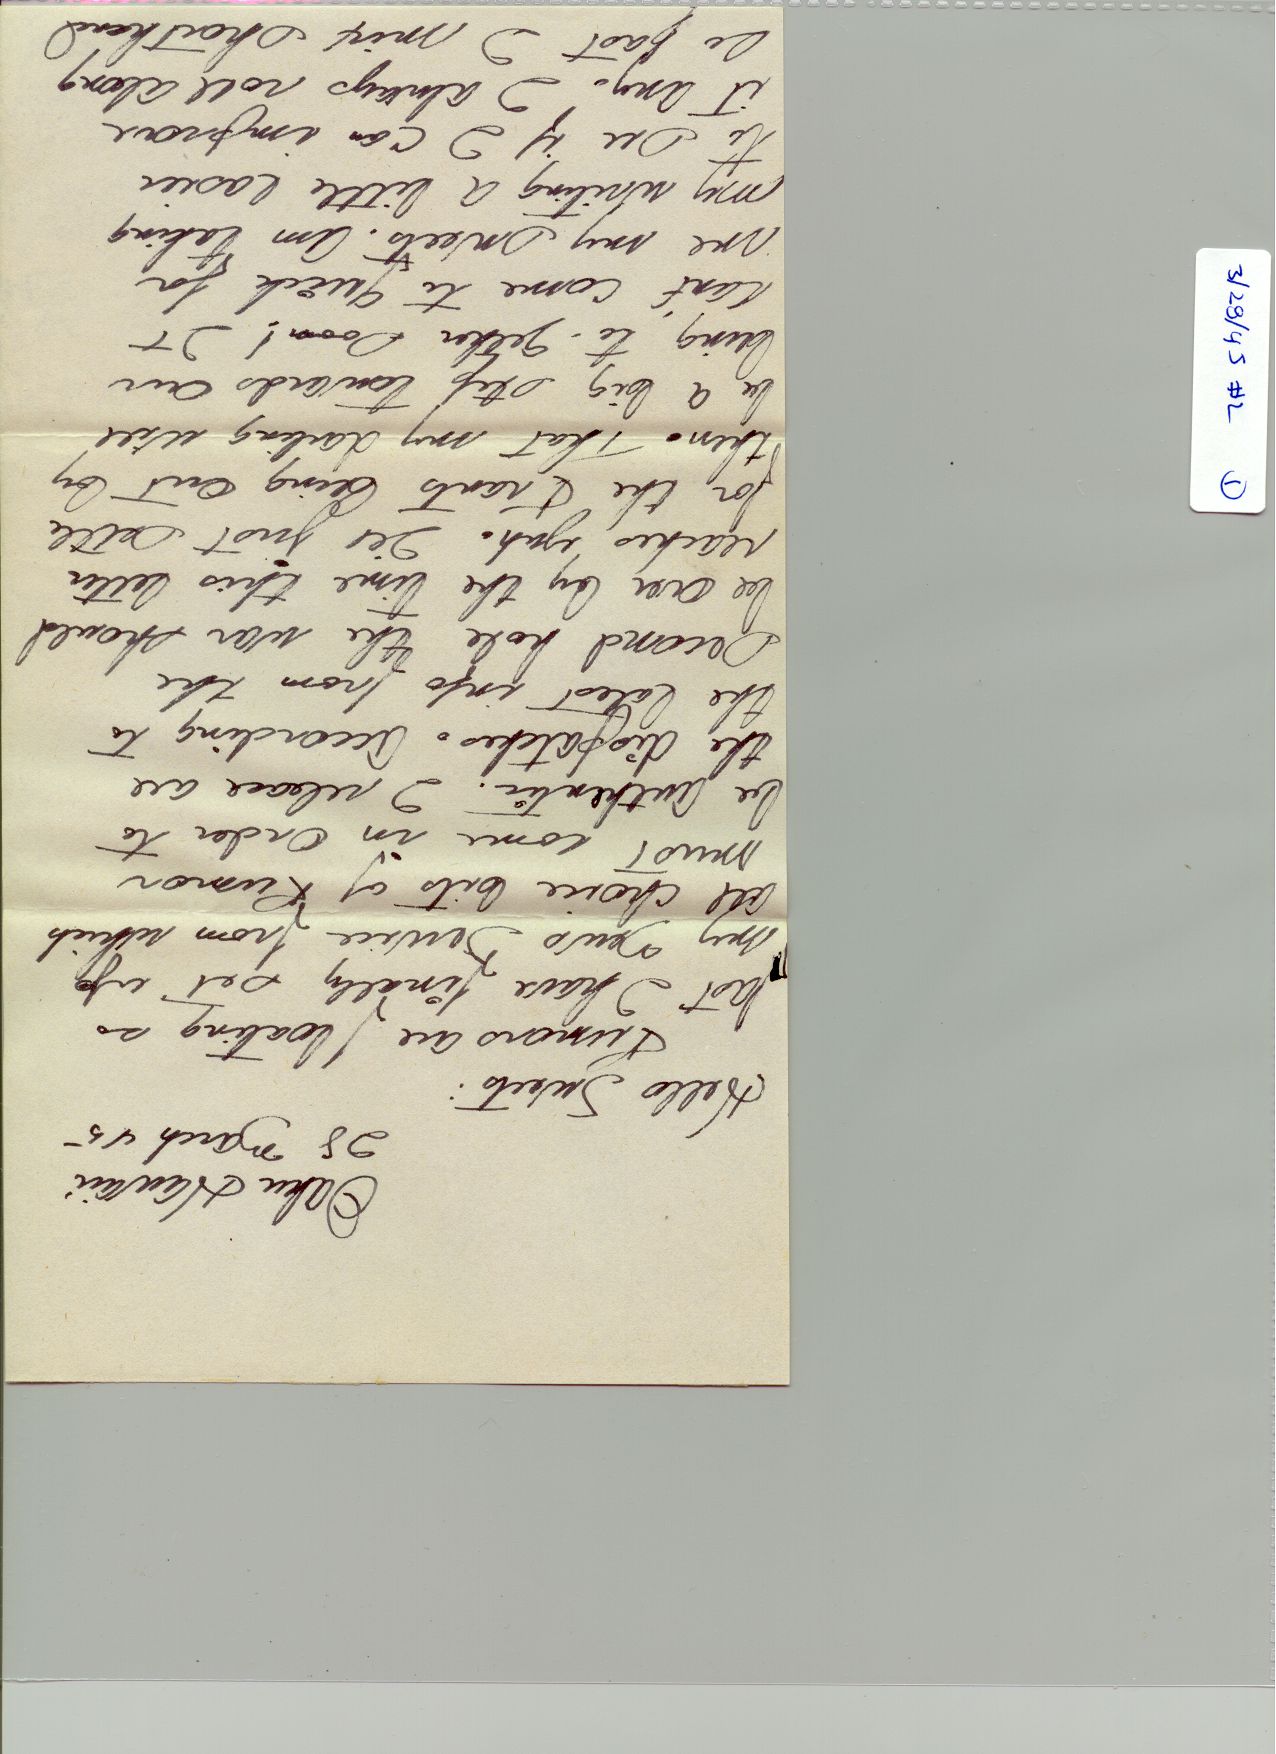 Oahu Hawaii
28 March 45
Hello Sweets:
Rumors are floating so
fast I have finally set up
my News Service from which
all choice bits of Rumor
must come in order to
be authentic. I release all
the dispatches. According to
the latest info from the
Second hole the war should
be over by the time this letter
reaches you. Its first settle
for the Krauts being out by
then. That my darling will
be a big step towards our
being to-gether soon! It
cant come to quick for
me my sweets. Am taking
my writing a little easier
to see if I can improve
it any. I always roll along
so fast I mix shorthand
3/28/45 #2 1